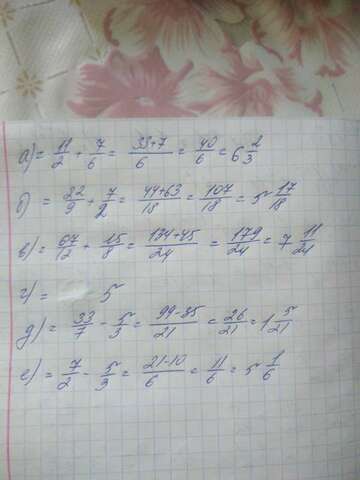 а) = 11/2 + 7/6 = 33+7/6 = 40/6 = 6 2/3
б) = 22/9 + 7/2 = 44+63/18 = 107/18 = 5 17/18
в) = 67/12 + 15/8 = 134+45/24 = 179/24 = 7 11/24
г) = 5
д) = 33/7 - 5/3 = 99-85/21 = 26/21 = 1 5/21
е) = 7/2 - 5/3 = 21-10/6 = 11/6 = 5 1/6